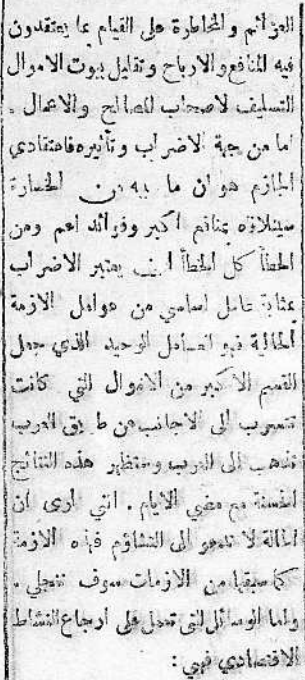 العزائم والمخاطرة على القيام بما يعتقدون
فيه المنافع والارباح وتقليل بيوت الاموال
التسليف لاصحاب المصالح والاعمال .
اما من جهة الاضراب وتأثيره فاعتقادي
الجازم هو ان ما به من الخسارة
سيتلافه بمنافع اكبر وفوائد اعم ومن
الخطأ كل الخطأ ان يعتبر الاضراب
بمثابة عامل اساسي من عوامل الازمة
الحالية فهو العامل الوحيد الذي جعل
القسم الاكبر من الاموال التي كانت
تتسرب الى الاجانب من طريق العرب
تذهب الى العرب وستظهر هذه النتائج
الحسنة مع مضي الايام . انني ارى ان
الحالة لا تدعو الى التشاؤم فهذه الازمة
كما سبقها من الازمات سوف تنجلي .
واما الوسائل التي تعمل على ارجاع النشاط
الاقتصادي فهي :